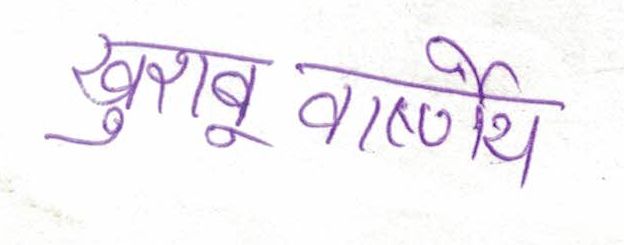 खुशबू वार्ष्णेय